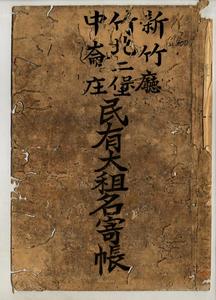 新竹廳
竹北二堡
中崙庄
民有大租名寄帳